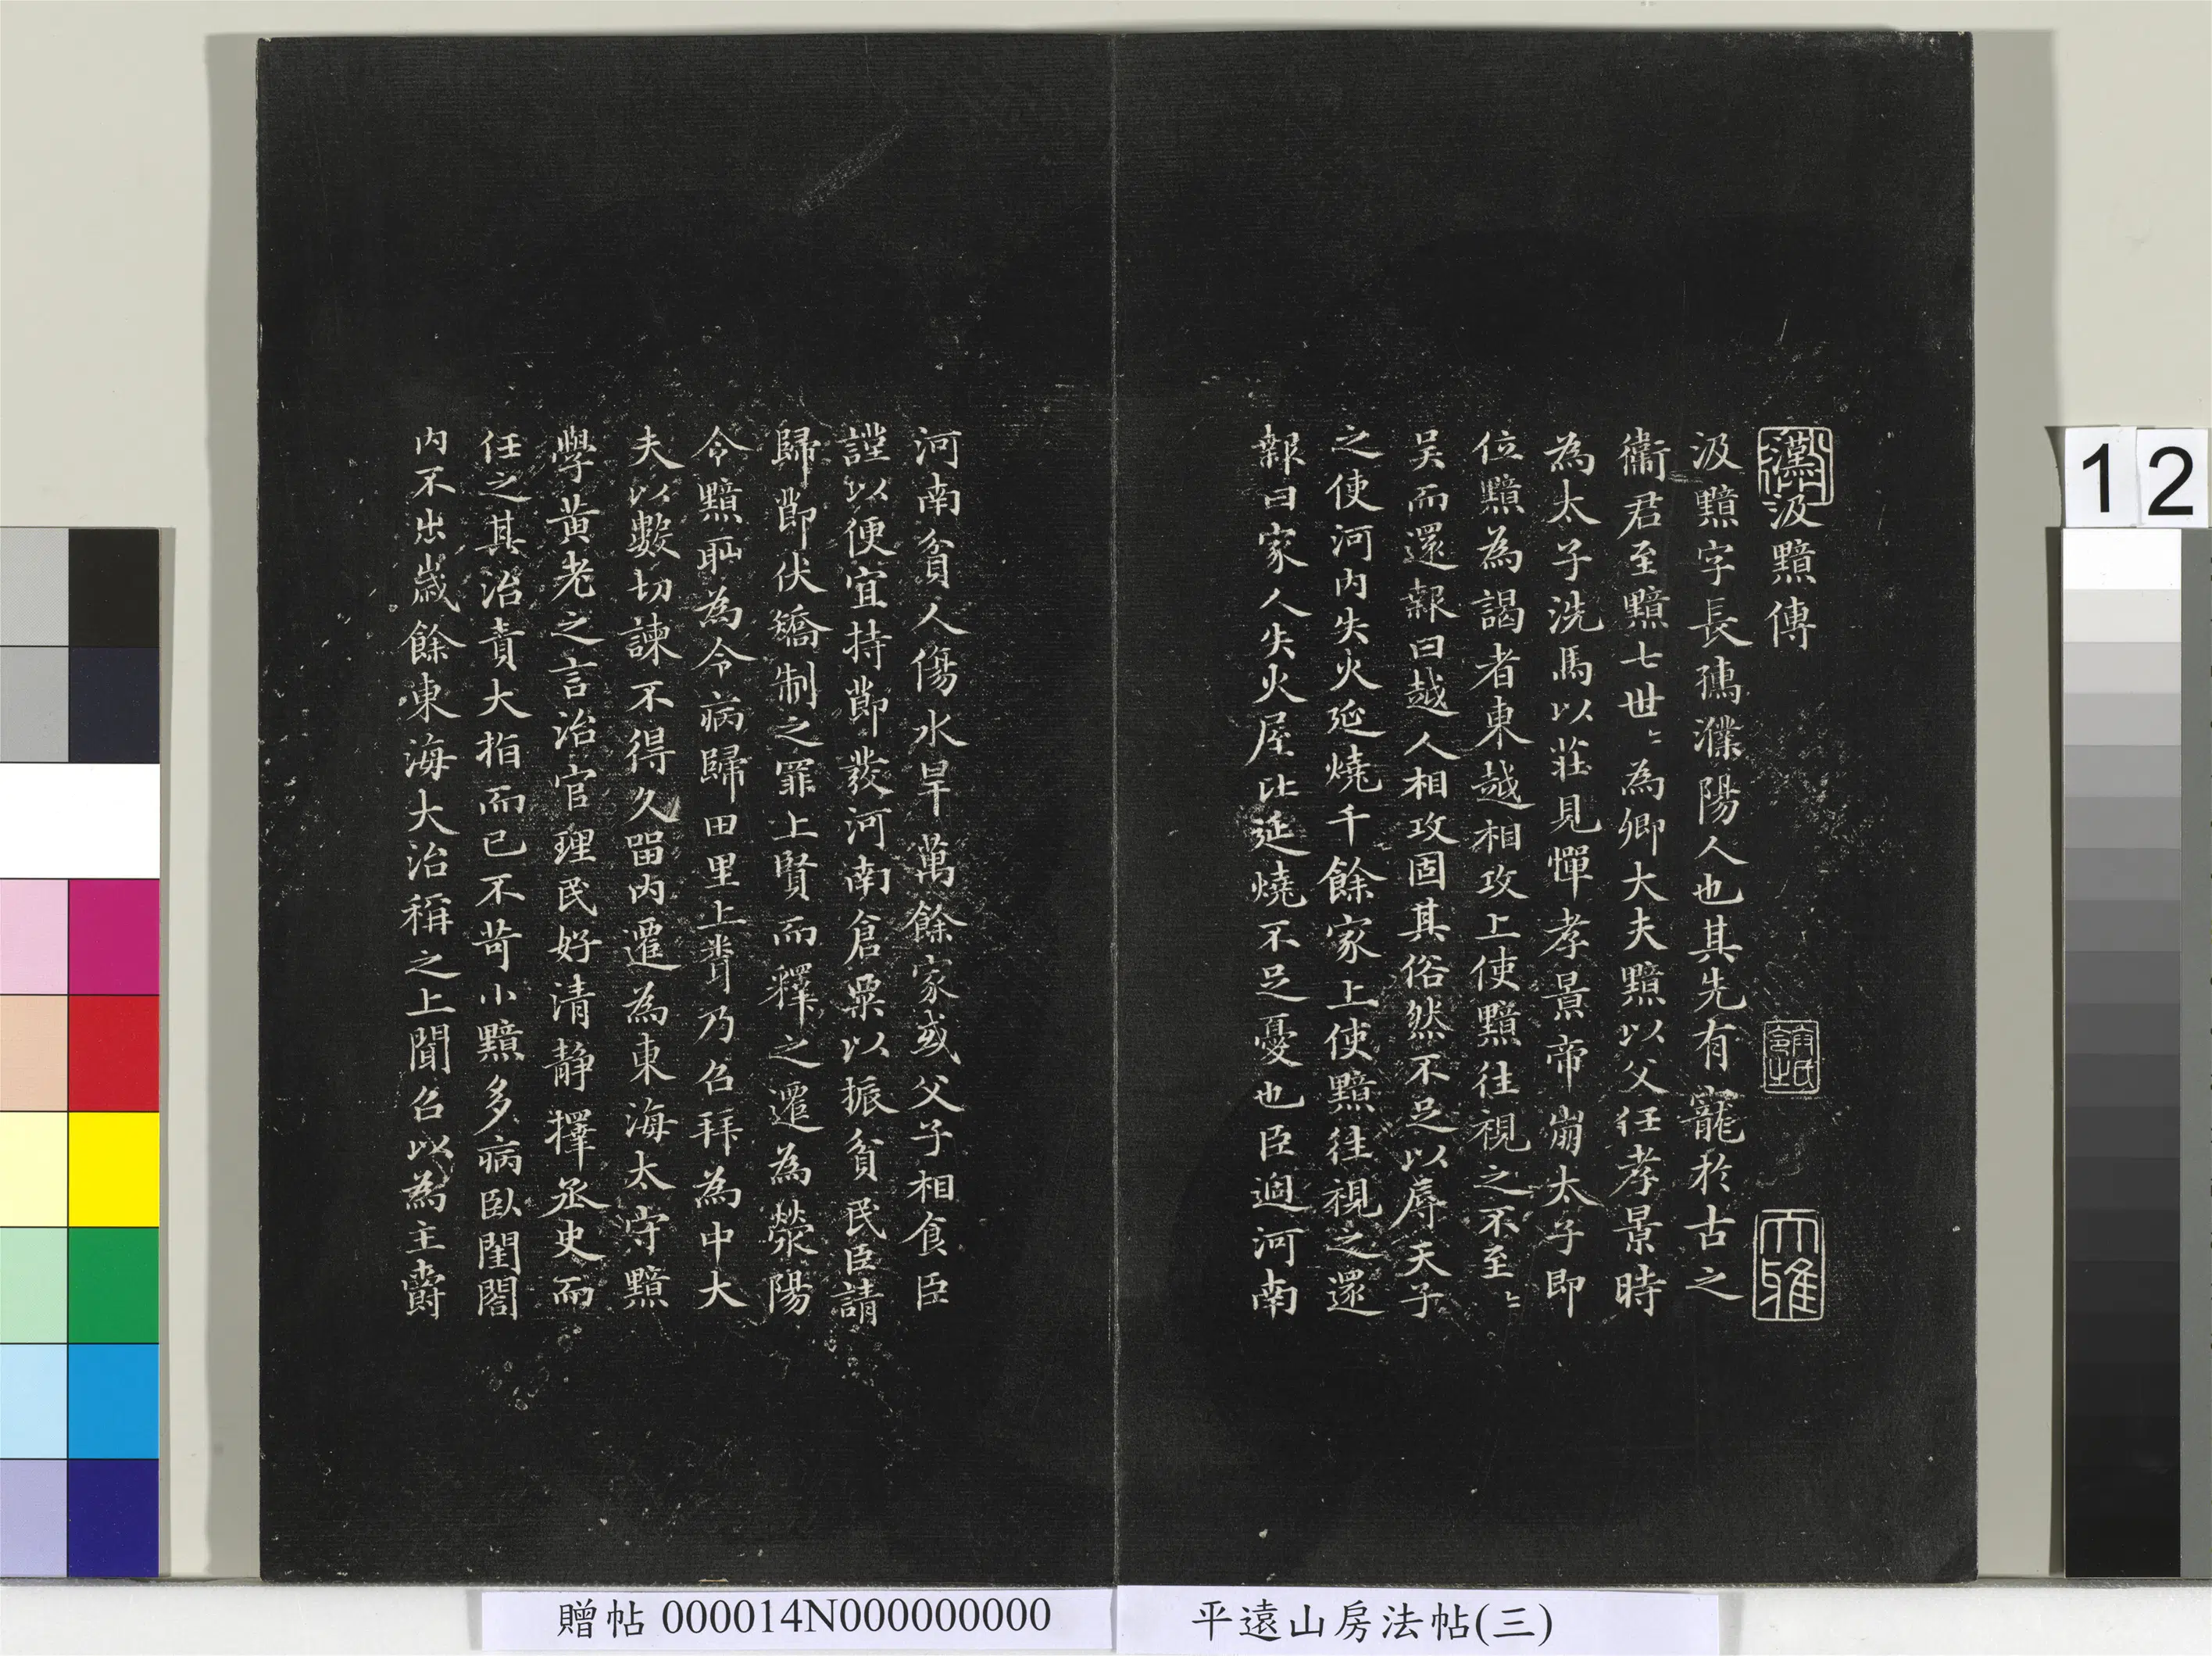 汲黯傳
汲黯字長孺濮陽人也其先有寵於古之
衞君至黯七世〻為卿大夫黯以父任孝景時
為太子洗馬以莊見憚孝景帝崩太子即
位黯為謁者東越相攻上使黯往視之不至〻
吳而還報曰越人相攻固其俗然不足以辱天子
之使河內失火延燒千餘家上使黯往視之還
報曰家人失火屋比延燒不足憂也臣過河南
河南貧人傷水旱萬餘家或父子相食臣
謹以便宜持節發河南倉粟以振貧民臣請
歸節伏矯制之罪上賢而釋之遷為滎陽
令黯恥為令病歸田里上聞乃召拜為中大
夫以數切諫不得久留內遷為東海太守黯
學黃老之言治官理民好清靜擇丞史而
任之其治責大指而已不苛小黯多病臥閨閤
內不出歲餘東海大治稱之上聞召以為主爵
大雅
12
贈帖 000014N000000000
平遠山房法帖(三)